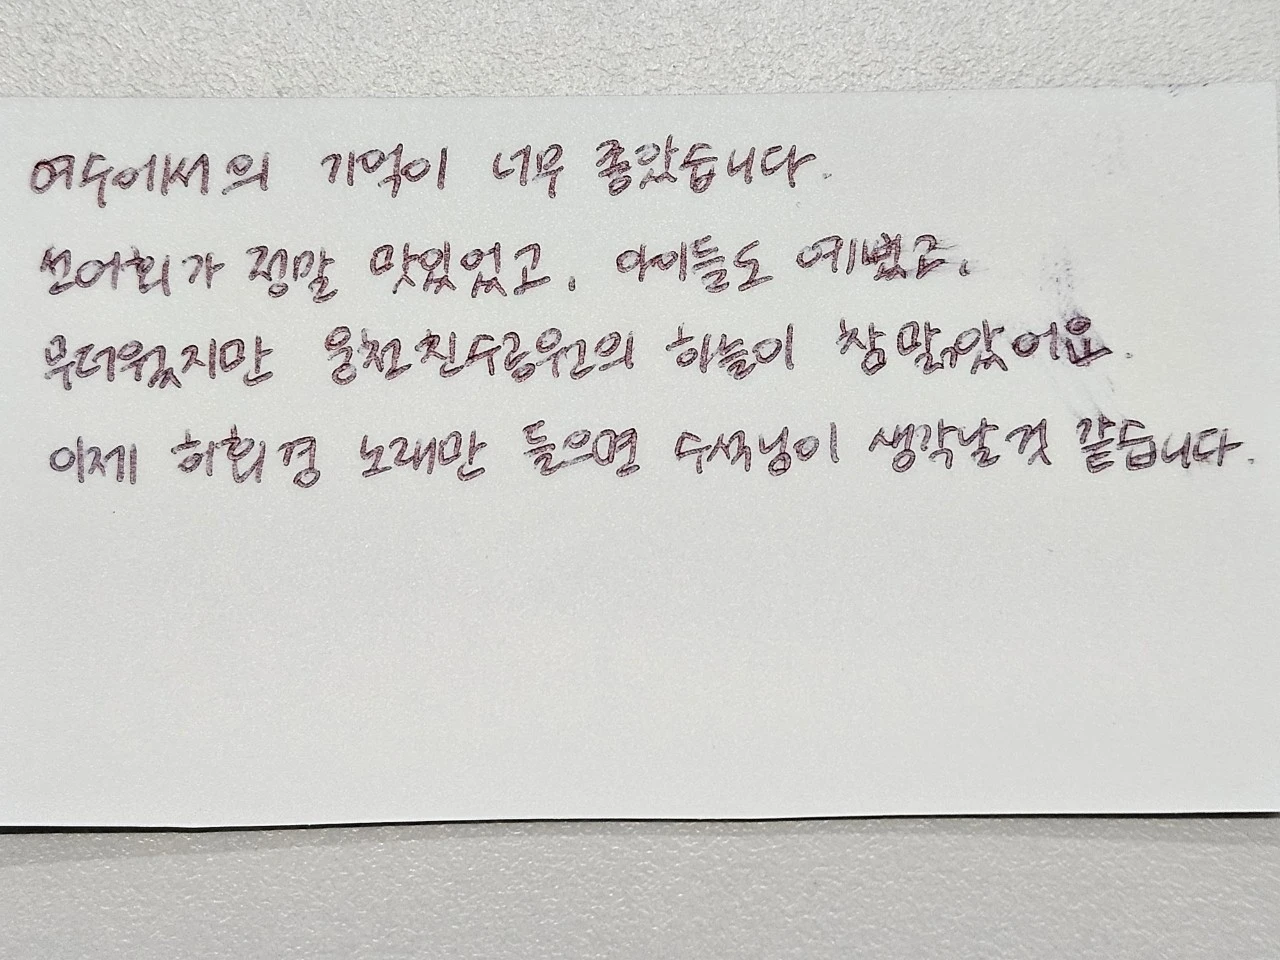 여수에서의 기억이 너무 좋았습니다.
선어회가 정말 맛있었고, 아이들도 예뻤고,
무더웠지만 웅천친수공원의 하늘이 참 맑았어요.
이제 하회경 노래만 들으면 수석님이 생각날 것 같습니다.